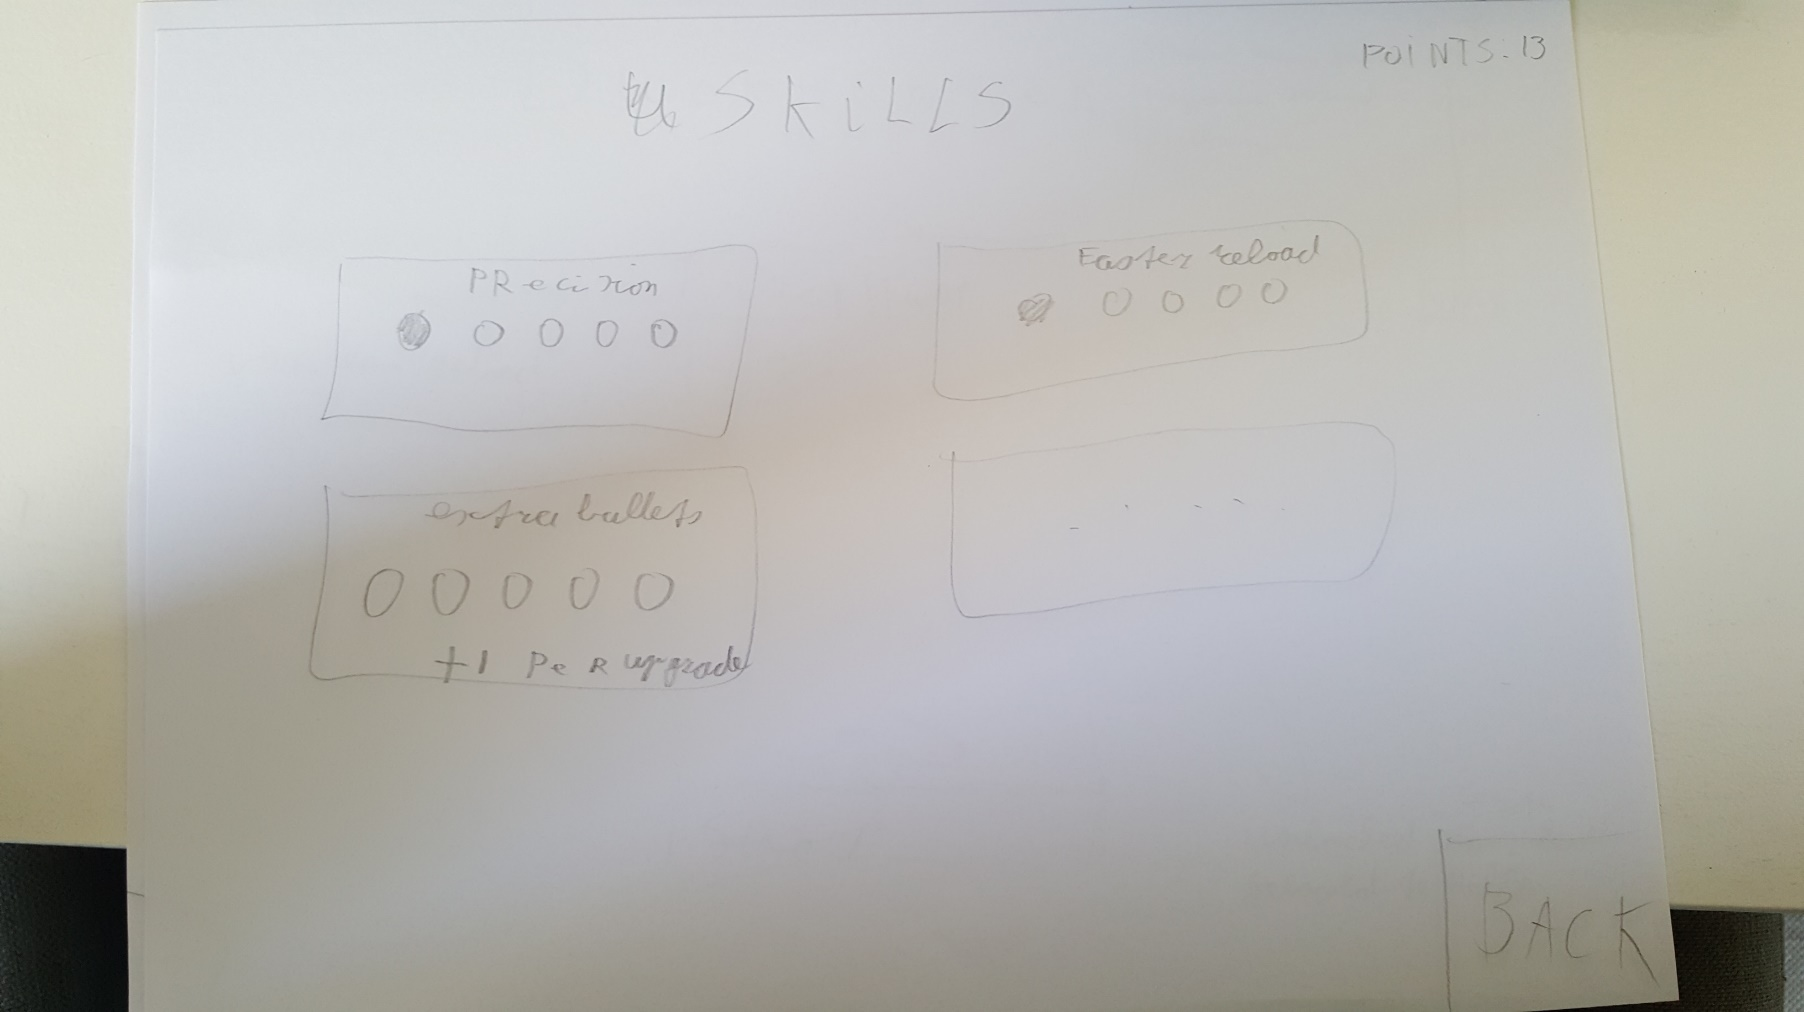 POINTS: 13
SKILLS
PRecision
Faster reload
extra bullets
+1 PeR upgrade
BACK